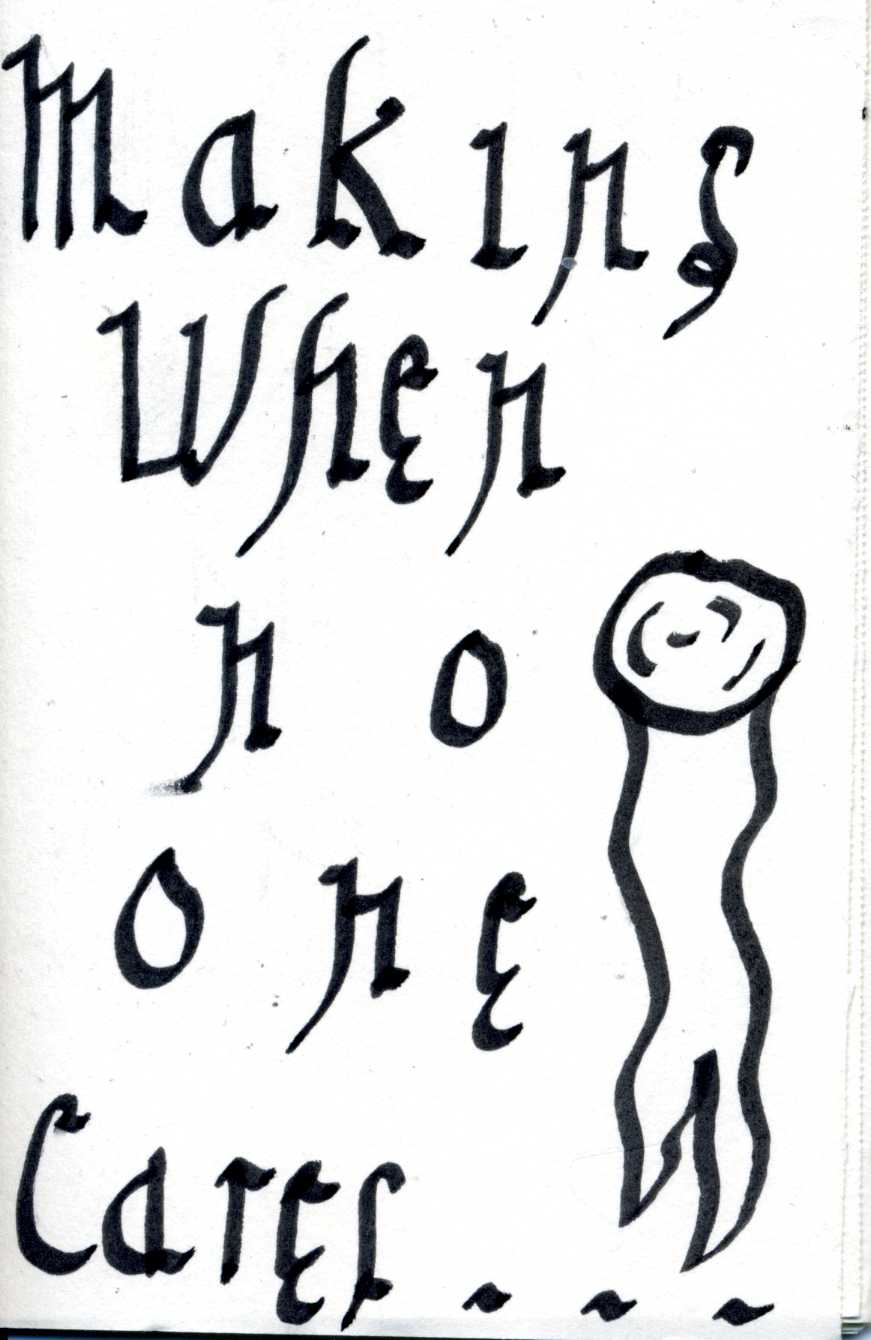 Making
When
no
one
Cares...